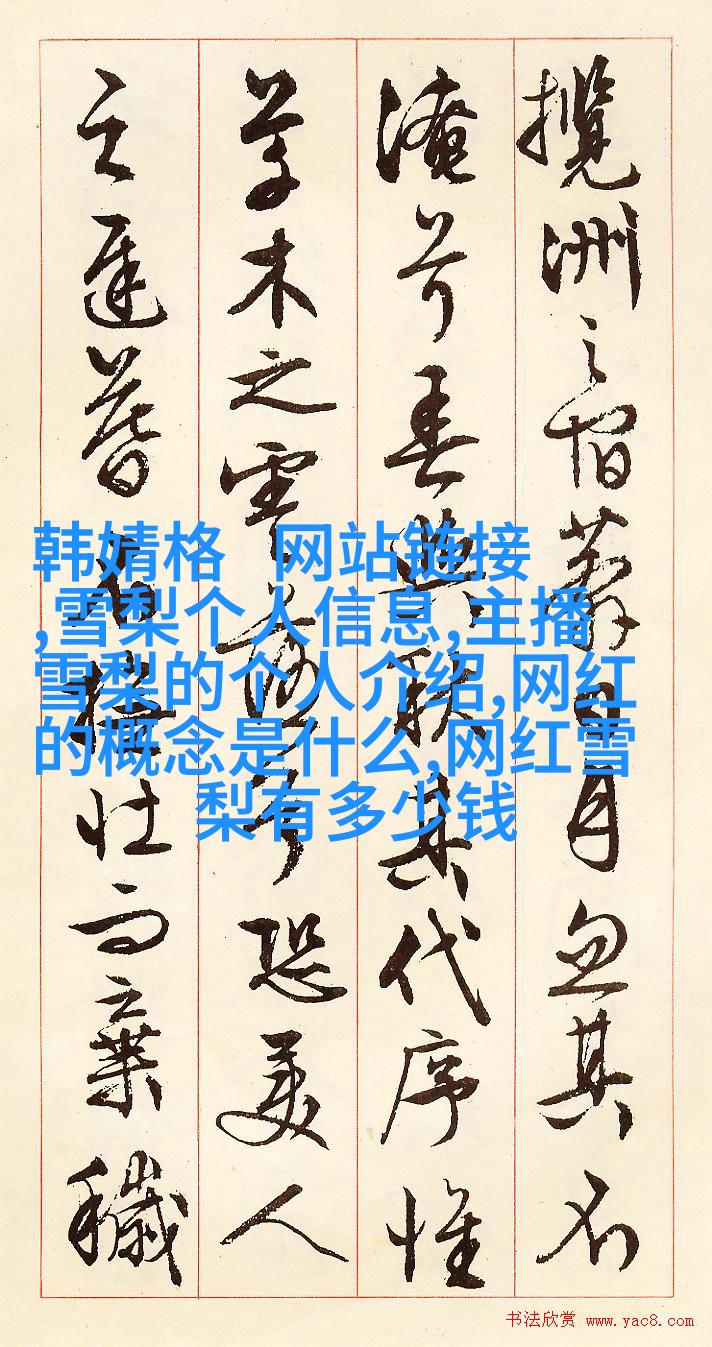 攬洲之宿莽日月忽其不
淹兮春與秋其代序惟
草木之零落兮恐美人
之遲暮不撫壯而棄穢
韩婧格 网站链接
,雪梨个人信息,主播
雪梨的个人介绍,网红
的概念是什么,网红雪
梨有多少钱
书法欣赏 www.yac8.com